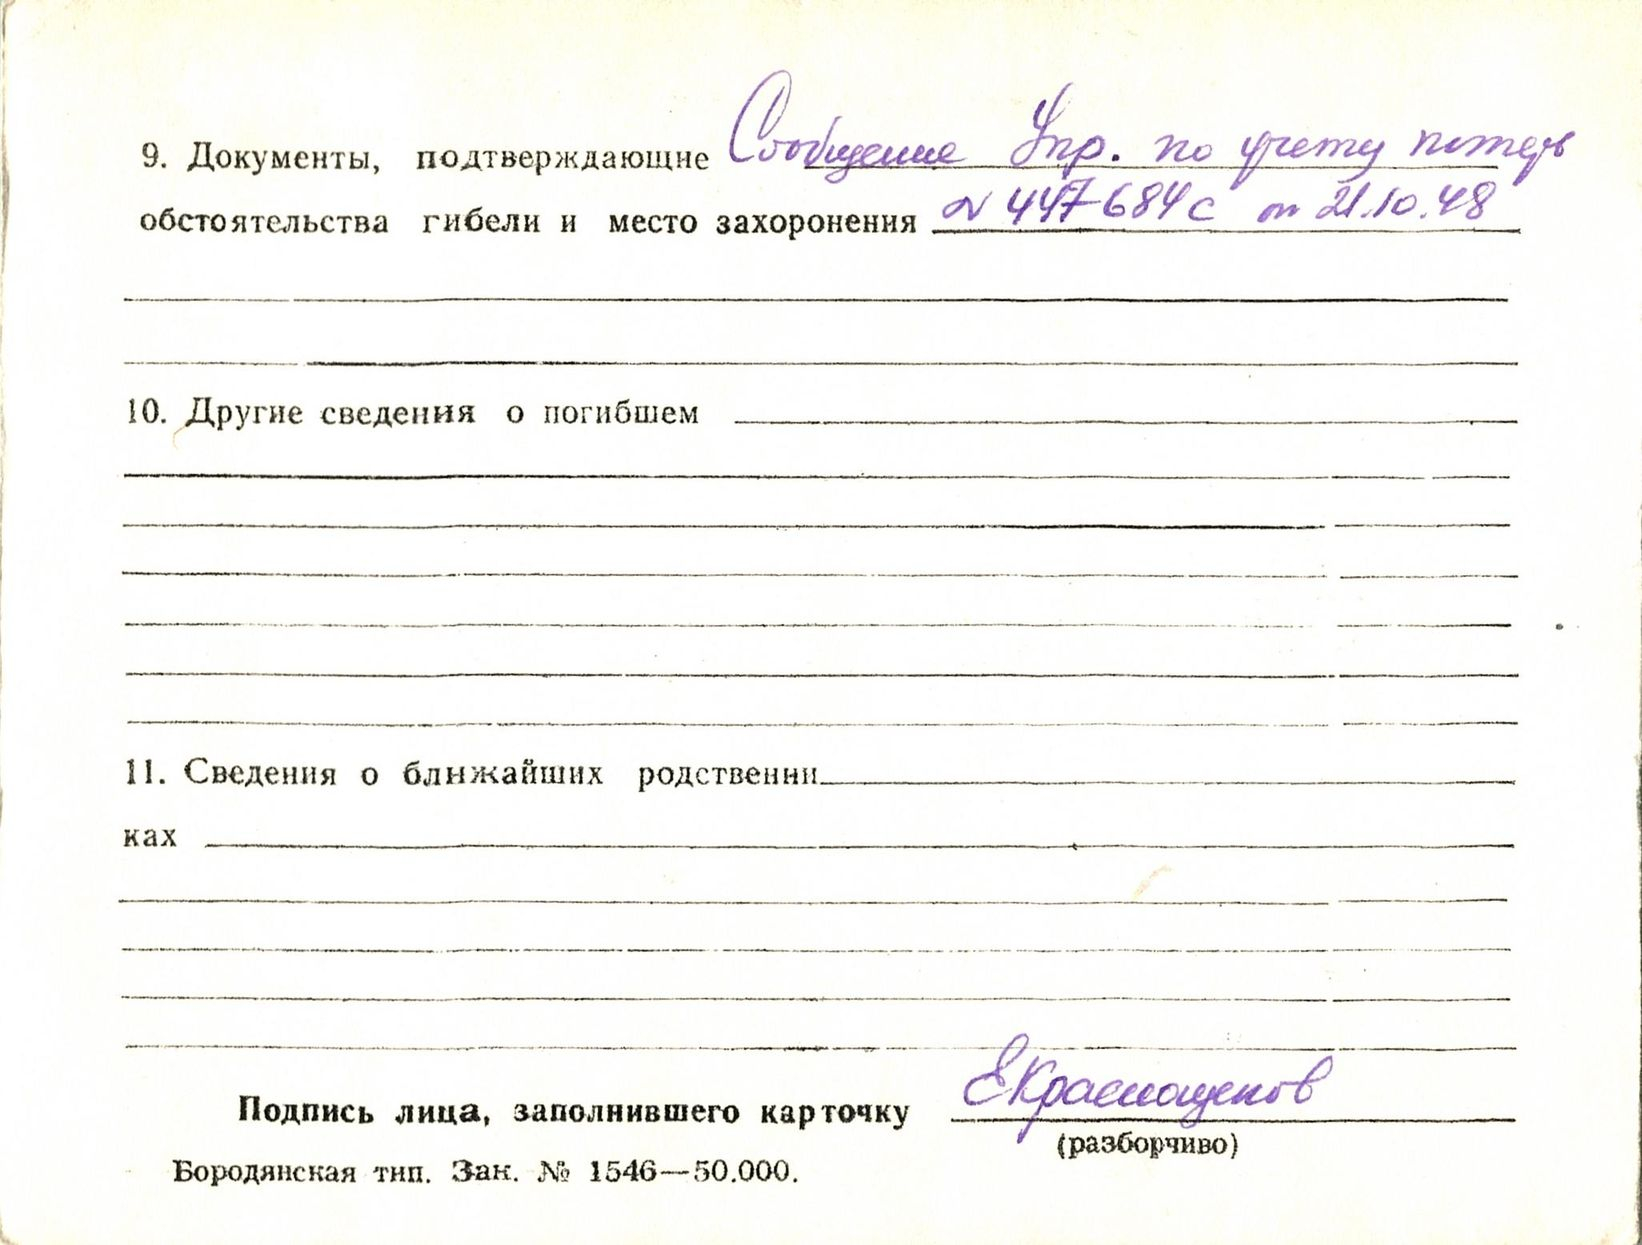 9. Документы, подтверждающие Сообщение Упр. по учету потерь
обстоятельства гибели и место захоронения № 447684с от 21.10.48
10. Другие сведения о погибшем
11. Сведения о ближайших родственни
ках
Подпись лица, заполнившего карточку ЕКраснощеков
(разборчиво)
Бородянская тип. Зак. № 1546—50.000.